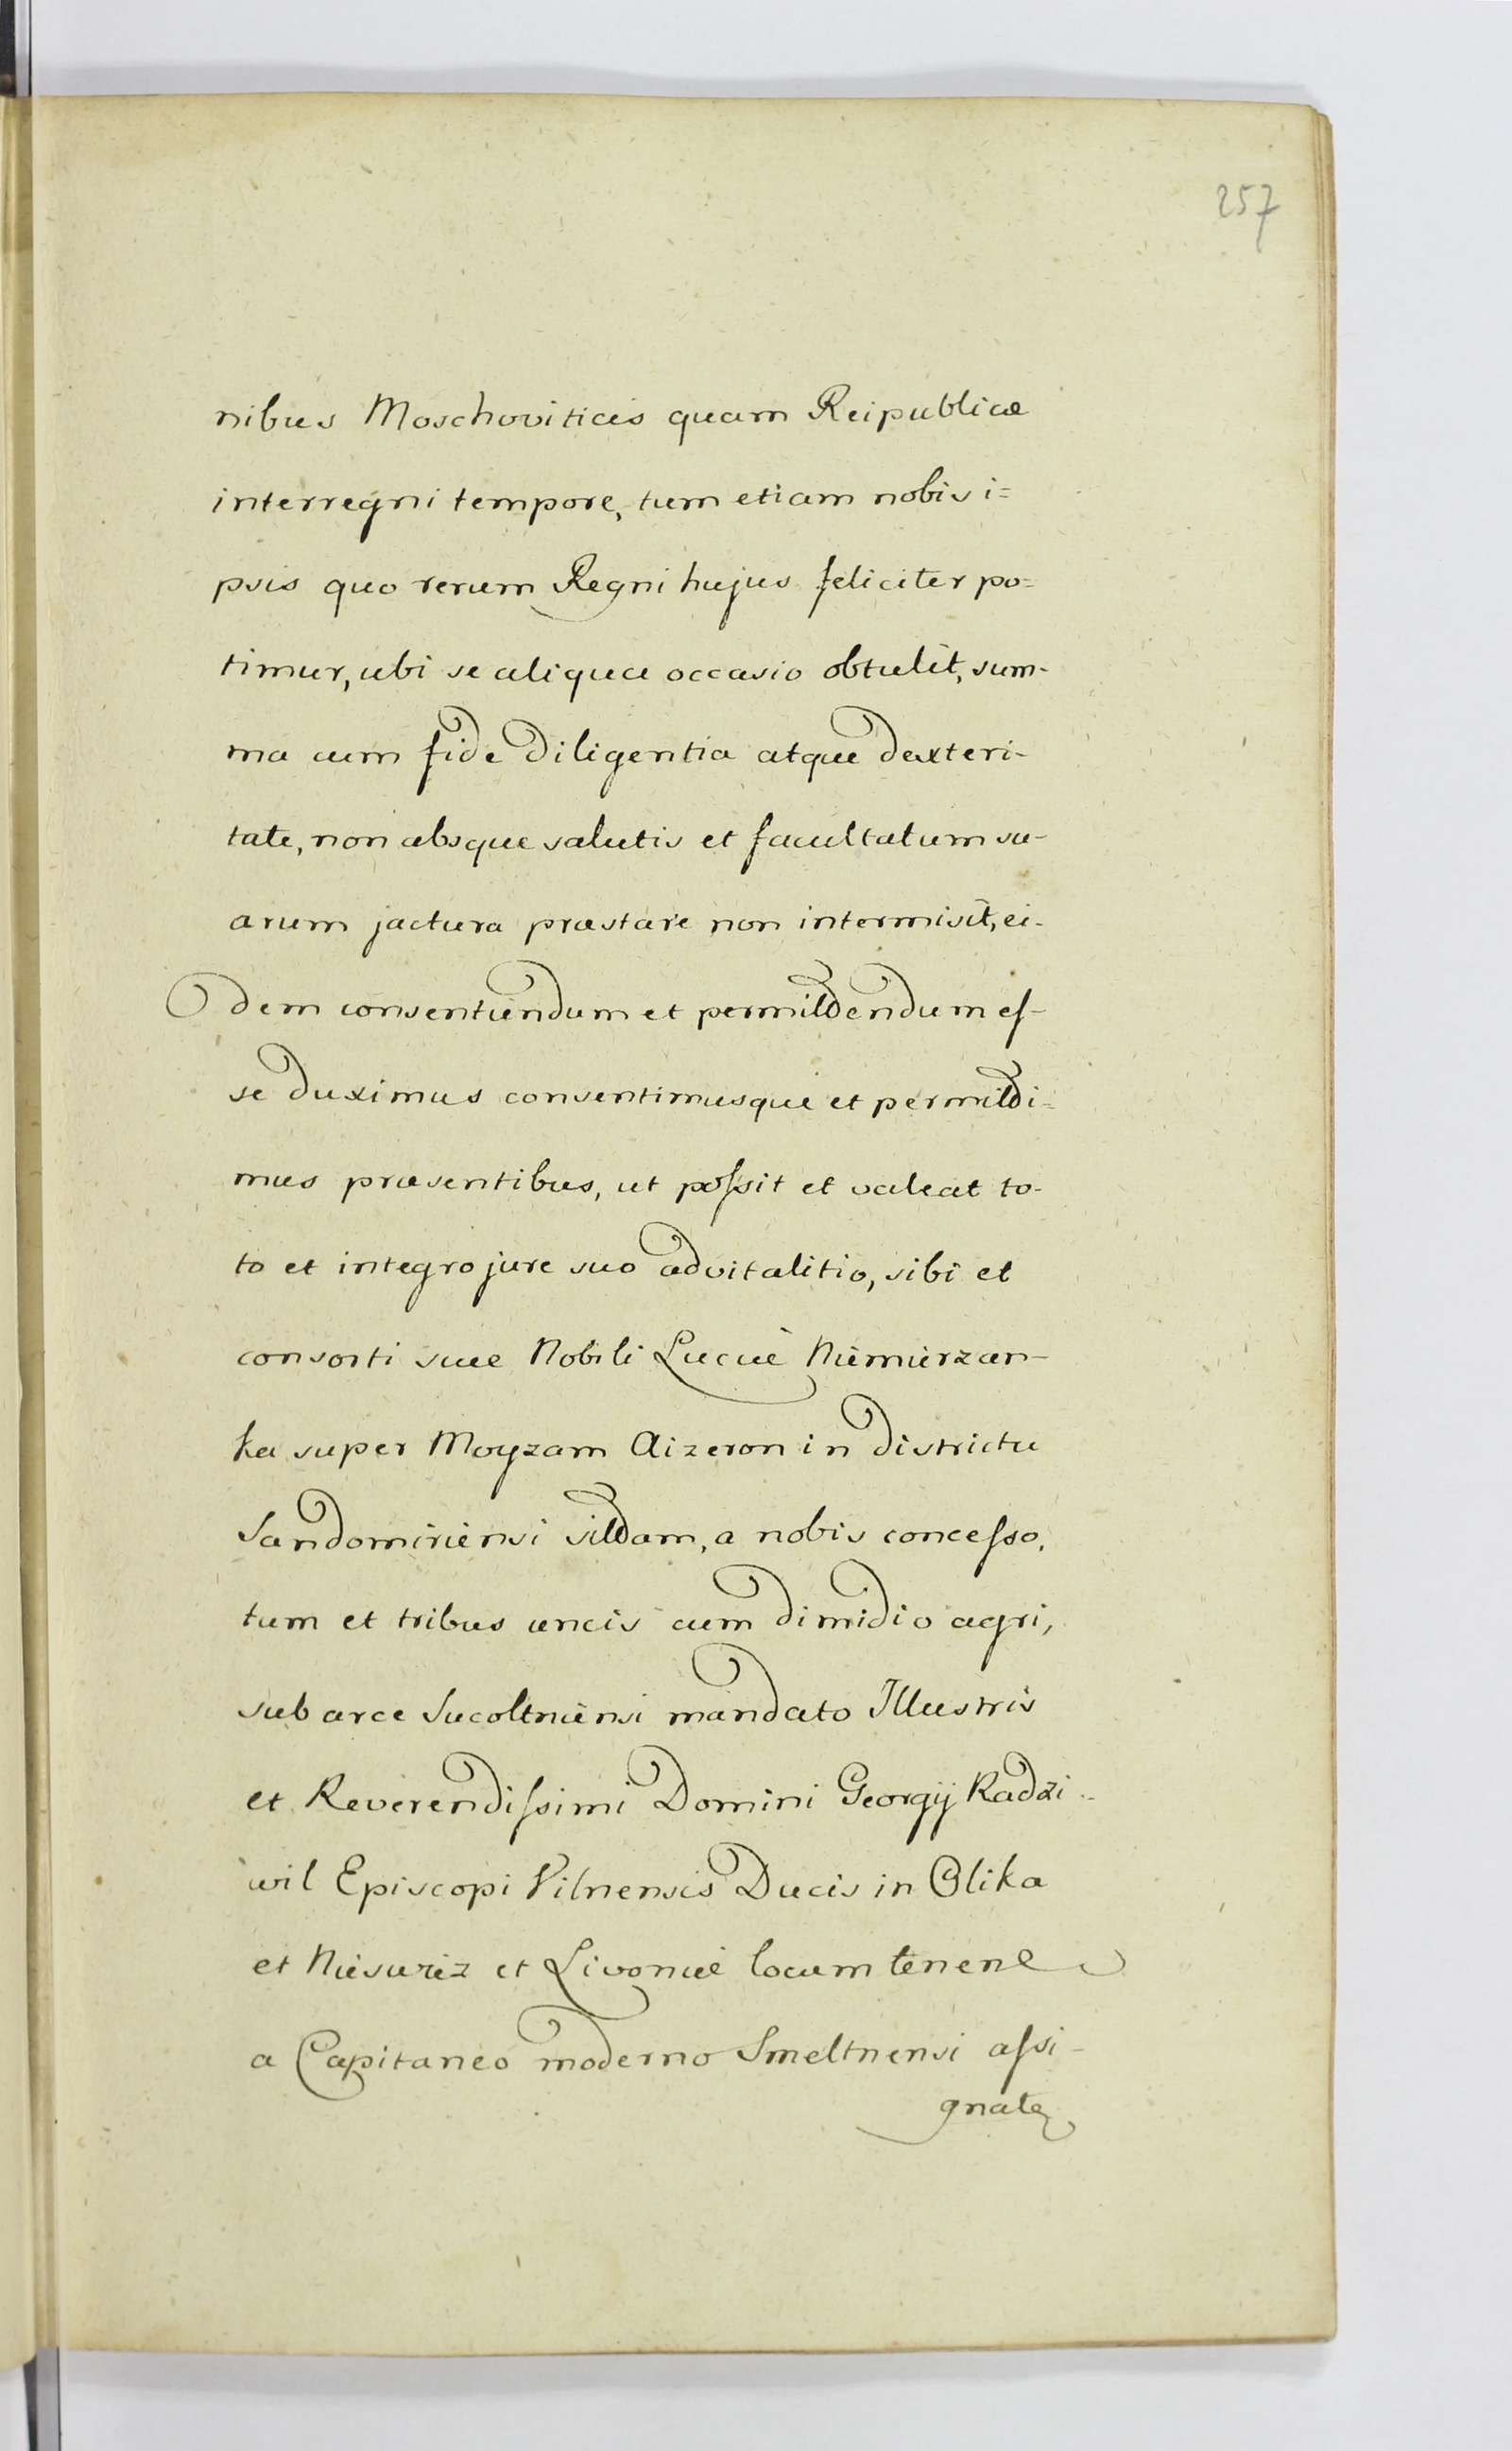 257
nibus Moschoviticis quam Reipublicæ
interregni tempore, tum etiam nobis i=
psis quo rerum Regni hujus feliciter po=
timur, ubi se aliqua occasio obtulit, sum-
ma cum fide diligentia atque dexteri-
tate, non absque salutis et facultatum su-
arum jactura præstare non intermisit, ei-
dem consentiendum et permittendum eſ-
se duximus consentimusque et permitti=
mus præsentibus, ut poſsit et valeat to-
to et integro jure suo advitalitio, sibi et
consorti suæ Nobili Luciæ Niemierzan-
ka super Moyzam Aizeron in districtu
Sandomiriensi sittam, a nobis conceſso,
tum et tribus uncis cum dimidio agri,
sub arce Sucoltniensi mandato Illustris
et Reverendiſsimi Domini Georgij Radzi-
wil Episcopi Vilnensis Ducis in Olika
et Niesuriz et Livoniæ locum tenene
a Capitaneo moderno Smeltnensi aſsi-
gnate